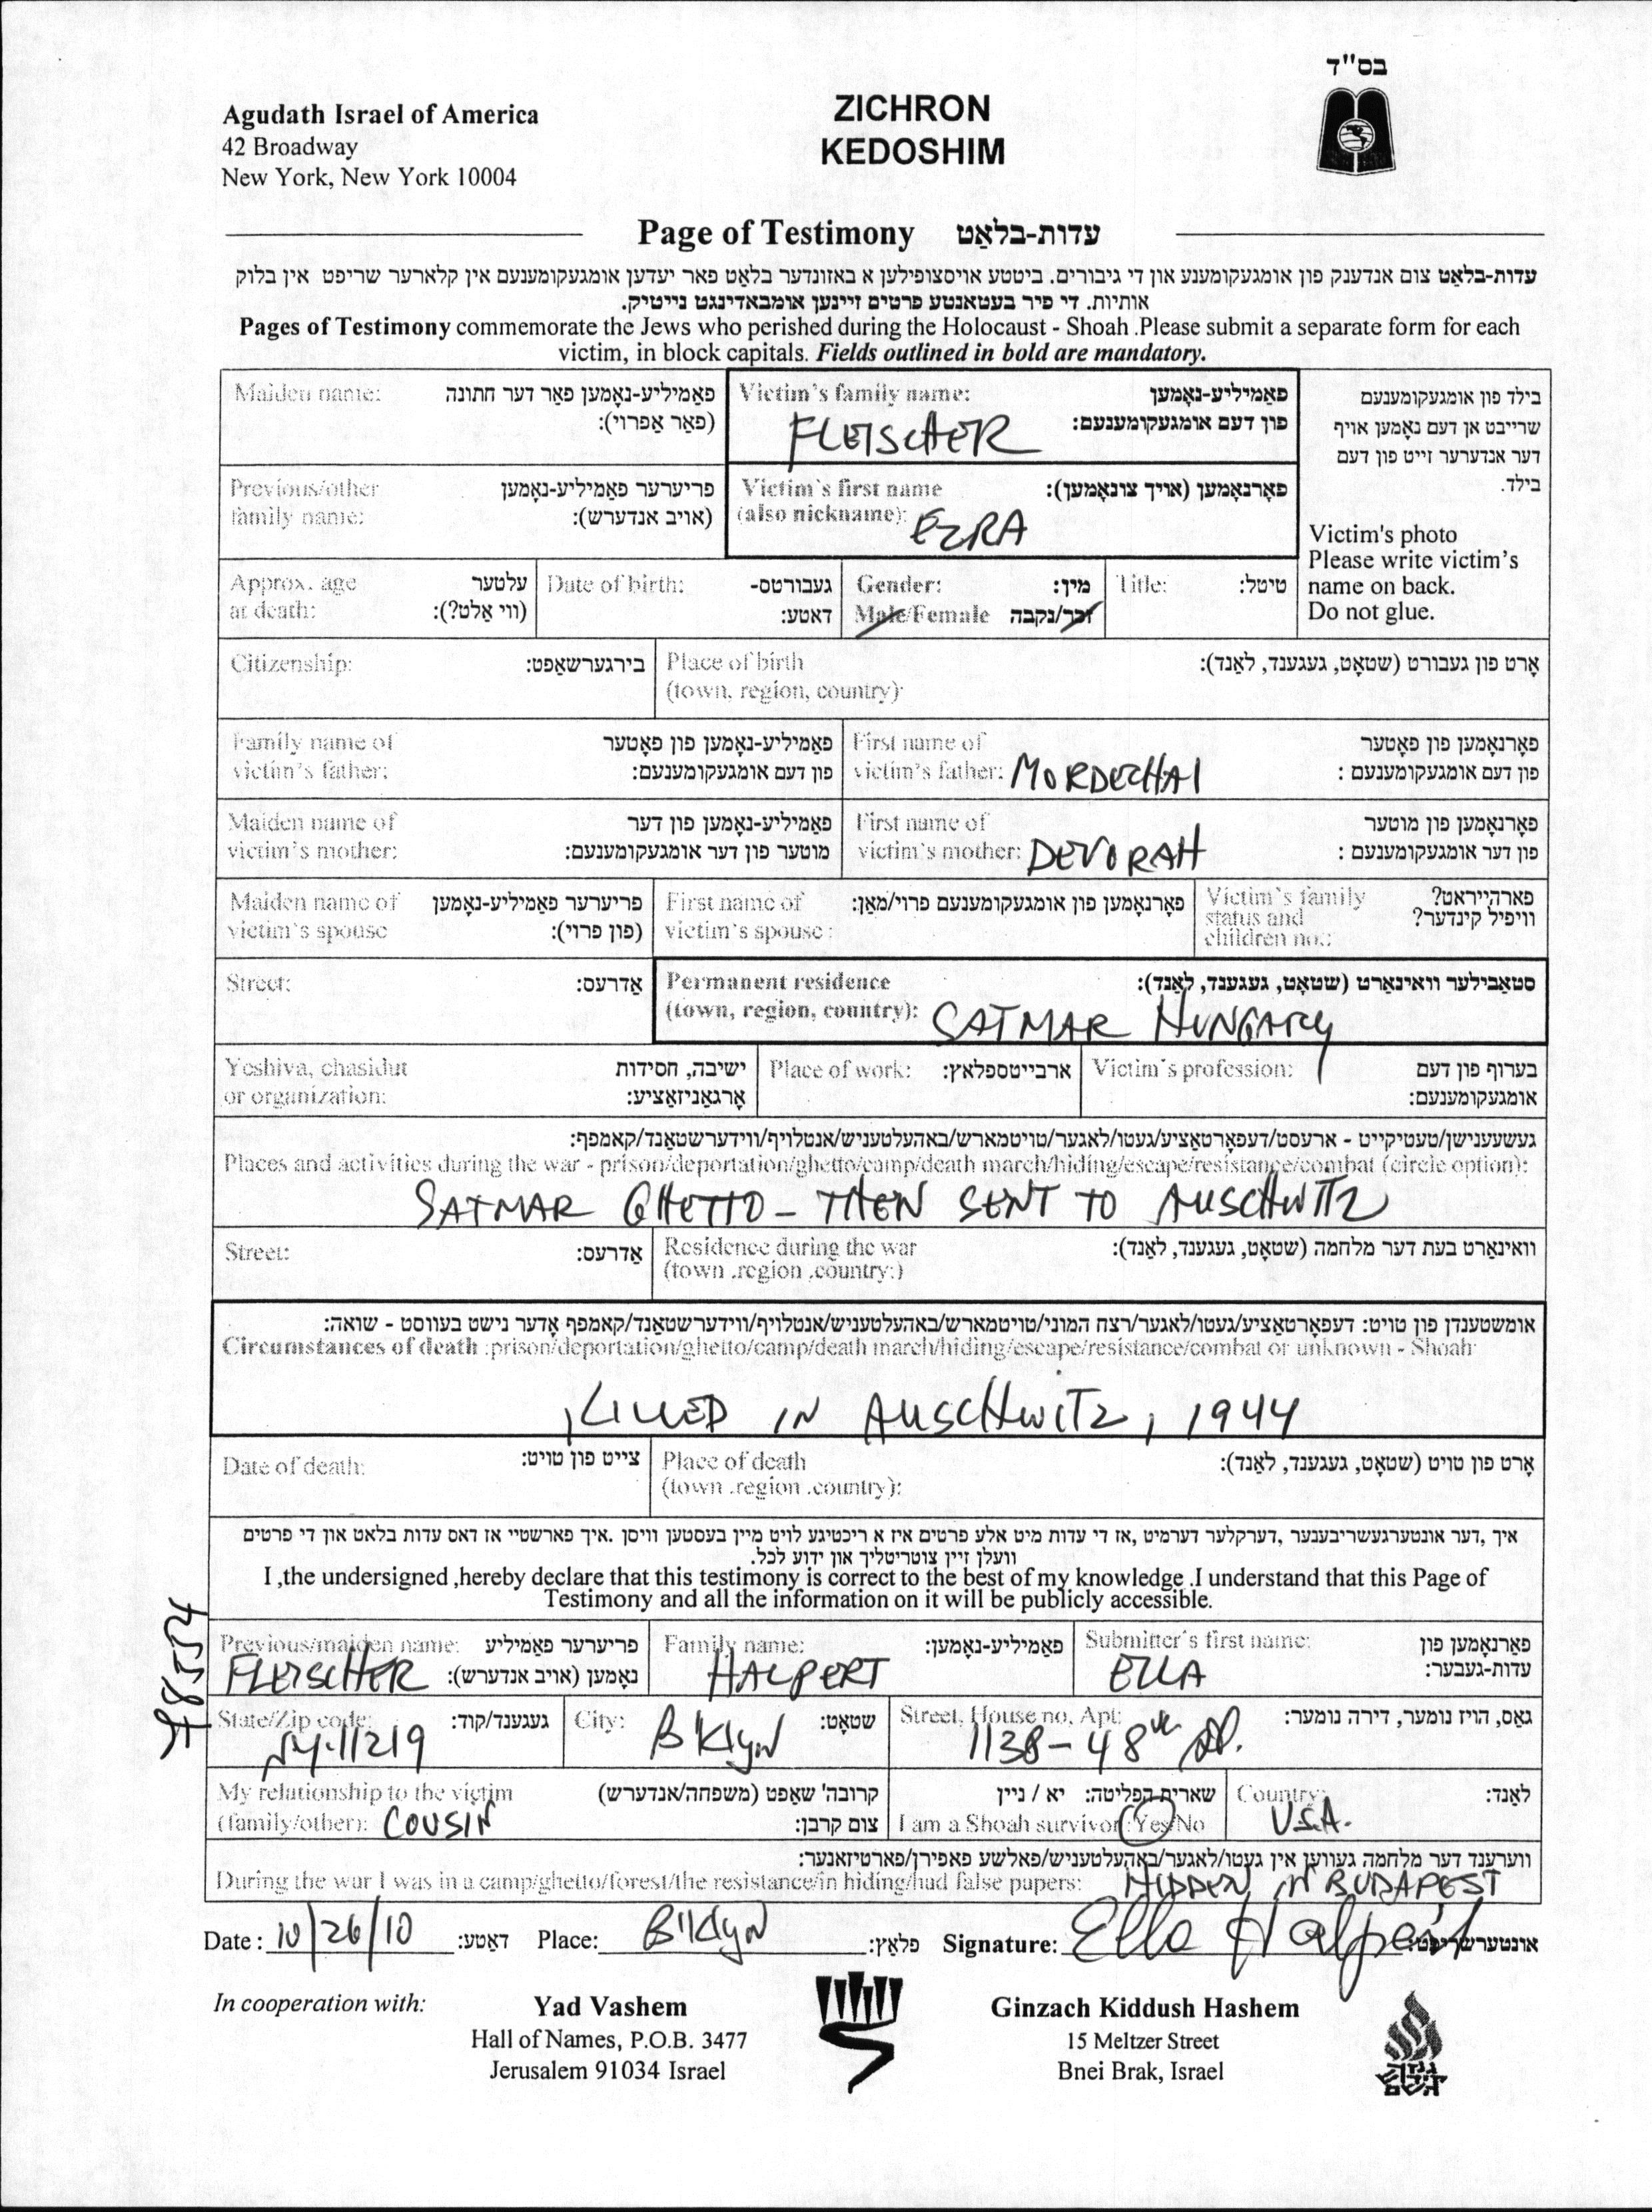 בס"ד
Agudath Israel of America
42 Broadway
New York, New York 10004
ZICHRON
KEDOSHIM
Page of Testimony עדות-בלאַט
עדות-בלאַט צום אנדענק פון אומגעקומענע און די גיבורים. ביטטע אויסצופילען א באזונדער בלאַט פאר יעדען אומגעקומענעם אין קלארער שריפט אין בלוק
אותיות. די פיר בעטאנטע פרטים זיינען אומבאדינגט נייטיק.
Pages of Testimony commemorate the Jews who perished during the Holocaust - Shoah .Please submit a separate form for each
victim, in block capitals. Fields outlined in bold are mandatory.
Maiden name: פאַמיליע-נאָמען פאַר דער חתונה
(פאַר אַפרוי):
Victim's family name: פאַמיליע-נאָמען
פון דעם אומגעקומענעם:
FLEISCHER
בילד פון אומגעקומענעם
שרייבט אן דעם נאָמען אויף
דער אנדערער זייט פון דעם
בילד.
Victim's photo
Please write victim's
name on back.
Do not glue.
Previous/other פריערער פאַמיליע-נאָמען
family name: (אויב אנדערש):
Victim's first name פאָרנאָמען (אויך צונאָמען):
(also nickname): EZRA
Approx. age עלטער
at death: (ווי אַלט?):
Date of birth: געבורטס-
דאַטע:
Gender: מין:
Male/Female זכר/נקבה
Title: טיטל:
Citizenship: בירגערשאַפט:
Place of birth אָרט פון געבורט (שטאָט, געגענד, לאַנד):
(town, region, country):
Family name of פאַמיליע-נאָמען פון פאָטער
victim's father: פון דעם אומגעקומענעם:
First name of פאָרנאָמען פון פאָטער
victim's father: MORDECHAI פון דעם אומגעקומענעם :
Maiden name of פאַמיליע-נאָמען פון דער
victim's mother: מוטער פון דער אומגעקומענעם:
First name of פאָרנאָמען פון מוטער
victim's mother: DEVORAH פון דער אומגעקומענעם :
Maiden name of פריערער פאַמיליע-נאָמען
victim's spouse (פון פרוי):
First name of פאָרנאָמען פון אומגעקומענעם פרוי/מאַן:
victim's spouse :
Victim's family פארהייראט?
status and וויפיל קינדער?
children no.:
Street: אַדרעס:
Permanent residence סטאַבילער וואינאַרט (שטאָט, געגענד, לאַנד):
(town, region, country): SATMAR HUNGARY
Yeshiva, chasidut ישיבה, חסידות
or organization: אָרגאַניזאַציע:
Place of work: ארבייטספלאץ:
Victim's profession: בערוף פון דעם
אומגעקומענעם:
געשעענישן/טעטיקייט - ארעסט/דעפאָרטאַציע/געטו/לאגער/טויטמארש/באהעלטעניש/אנטלויף/ווידערשטאַנד/קאמפף:
Places and activities during the war - prison/deportation/ghetto/camp/death march/hiding/escape/resistance/combat (circle option):
SATMAR GHETTO - THEN SENT TO AUSCHWITZ
Street: אַדרעס:
Residence during the war וואינאַרט בעת דער מלחמה (שטאָט, געגענד, לאַנד):
(town .region .country:)
אומשטענדן פון טויט: דעפאָרטאַציע/געטו/לאגער/רצח המוני/טויטמארש/באהעלטעניש/אנטלויף/ווידערשטאַנד/קאמפף אָדער נישט בעווסט - שואה:
Circumstances of death :prison/deportation/ghetto/camp/death march/hiding/escape/resistance/combat or unknown - Shoah
KILLED IN AUSCHWITZ, 1944
Date of death: צייט פון טויט:
Place of death אָרט פון טויט (שטאָט, געגענד, לאַנד):
(town .region .country):
איך ,דער אונטערגעשריבענער ,דערקלער דערמיט ,אז די עדות מיט אלע פרטים איז א ריכטיגע לויט מיין בעסטען וויסן .איך פארשטיי אז דאס עדות בלאט און די פרטים
וועלן זיין צוטריטליך און ידוע לכל.
I ,the undersigned ,hereby declare that this testimony is correct to the best of my knowledge .I understand that this Page of
Testimony and all the information on it will be publicly accessible.
Previous/maiden name: פריערער פאַמיליע
FLEISCHER נאָמען (אויב אנדערש):
Family name: פאַמיליע-נאָמען:
HALPERT
Submitter's first name: פאָרנאָמען פון
ELLA עדות-געבער:
State/Zip code: געגענד/קוד:
NY. 11219
City: שטאָט:
BKlyN
Street, House no, Apt: גאַס, הויז נומער, דירה נומער:
1138 - 48th St.
My relationship to the victim קרובה' שאַפט (משפחה/אנדערש)
(family/other): COUSIN צום קרבן:
שארית הפליטה: יא / ניין
I am a Shoah survivor: Yes/No
Country: לאַנד:
U.S.A.
ווערענד דער מלחמה געווען אין געטו/לאגער/באהעלטעניש/פאלשע פאפירן/פארטיזאנער:
During the war I was in a camp/ghetto/forest/the resistance/in hiding/had false papers: HIDDEN IN BUDAPEST
Date : 10/26/10 דאַטע: Place: B'KlyN פלאַץ: Signature: Ella Halpert אונטערשריפט:
In cooperation with:
Yad Vashem
Hall of Names, P.O.B. 3477
Jerusalem 91034 Israel
Ginzach Kiddush Hashem
15 Meltzer Street
Bnei Brak, Israel